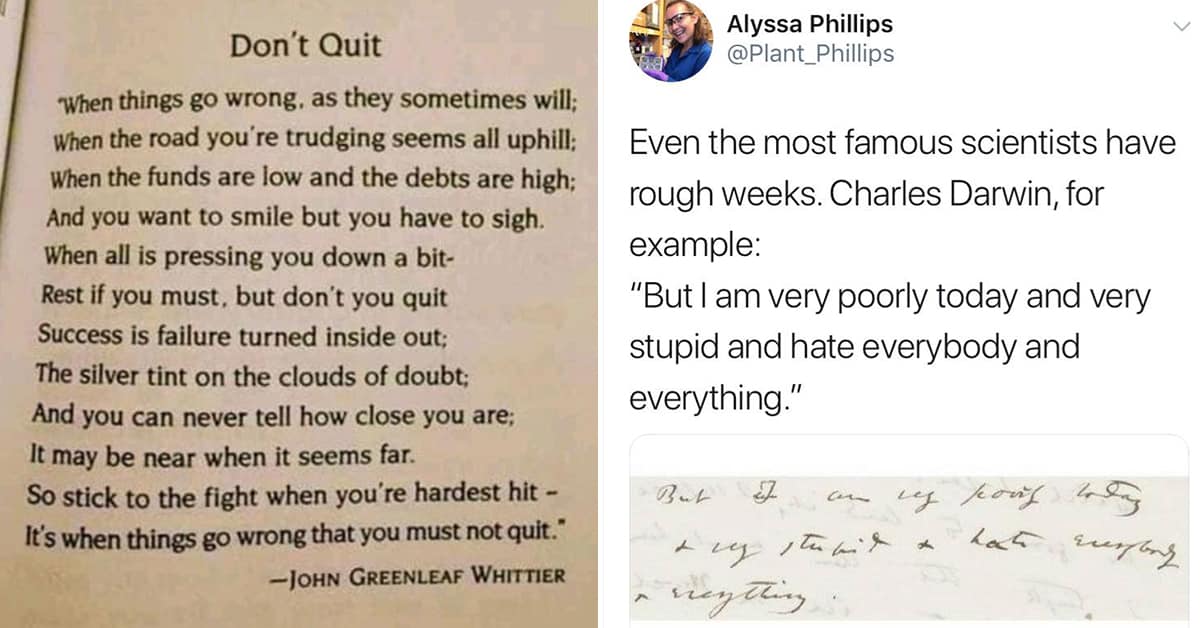 Don't Quit
"When things go wrong, as they sometimes will;
When the road you're trudging seems all uphill;
When the funds are low and the debts are high;
And you want to smile but you have to sigh.
When all is pressing you down a bit-
Rest if you must, but don't you quit
Success is failure turned inside out;
The silver tint on the clouds of doubt;
And you can never tell how close you are;
It may be near when it seems far.
So stick to the fight when you're hardest hit –
It's when things go wrong that you must not quit."
—JOHN GREENLEAF WHITTIER
Alyssa Phillips
@Plant_Phillips
Even the most famous scientists have
rough weeks. Charles Darwin, for
example:
"But I am very poorly today and very
stupid and hate everybody and
everything."
But I am vy poorly today
& vy stupid & hate everybody
& everything.